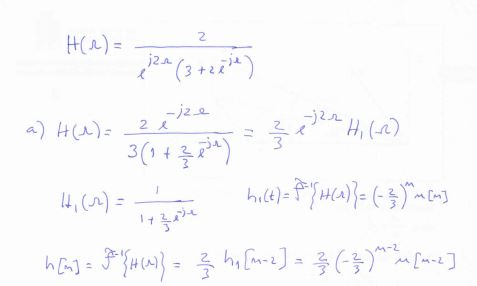 H(Ω) = 2 / (e^{j2Ω} (3 + 2e^{-jΩ}))
a) H(Ω) = 2 e^{-j2Ω} / (3(1 + 2/3 e^{-jΩ})) = 2/3 e^{-j2Ω} H₁(Ω)
H₁(Ω) = 1 / (1 + 2/3 e^{-jΩ}) h₁(t) = F^{-1}{H(Ω)} = (-2/3)^n u[n]
h[n] = F^{-1}{H(Ω)} = 2/3 h₁[n-2] = 2/3 (-2/3)^{n-2} u[n-2]